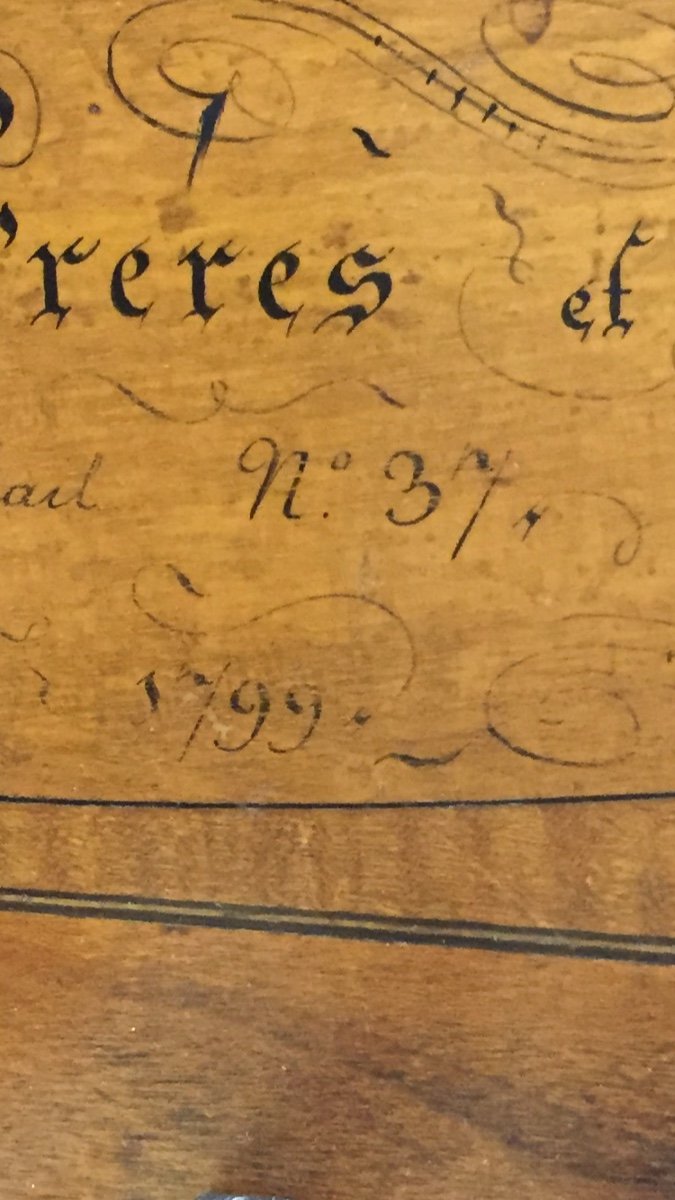 Freres et
ail N.º 37,
1799.